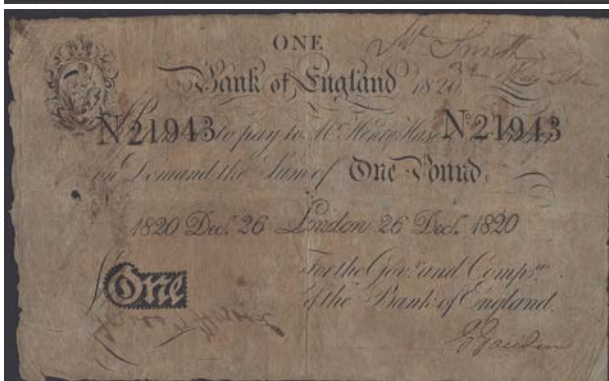 ONE
Mr Smith
Bank of England 1820
No 21943 to pay to Mr Henry Hase No 21943
on Demand the Sum of One Pound.
1820 Decr. 26 London 26 Decr. 1820
For the Govr. and Compa.
£One
of the Bank of England.